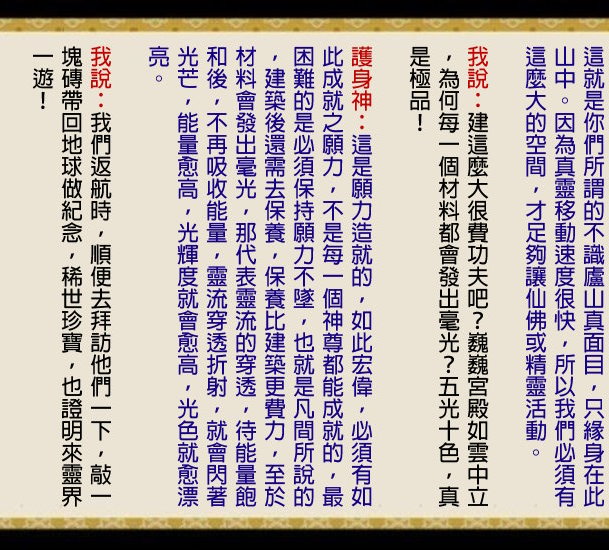 這就是你們所謂的不識廬山真面目，只緣身在此
山中。因為真靈移動速度很快，所以我們必須有
這麼大的空間，才足夠讓仙佛或精靈活動。
我說：建這麼大很費功夫吧？巍巍宮殿如雲中立
，為何每一個材料都會發出毫光？五光十色，真
是極品！
護身神：這是願力造就的，如此宏偉，必須有如
此成就之願力，不是每一個神尊都能成就的，最
困難的是必須保持願力不墜，也就是凡間所說的
，建築後還需去保養，保養比建築更費力，至於
材料會發出毫光，那代表靈流的穿透，待能量飽
和後，不再吸收能量，靈流穿透折射，就會閃著
光芒，能量愈高，光輝度就會愈高，光色就愈漂
亮。
我說：我們返航時，順便去拜訪他們一下，敲一
塊磚帶回地球做紀念，稀世珍寶，也證明來靈界
一遊！